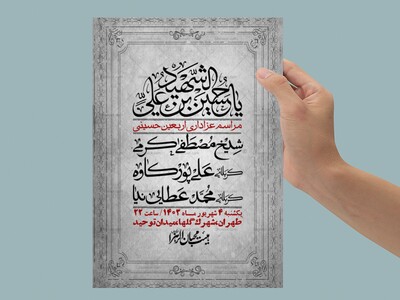 یا حسین بن علی الشهید
مراسم عزاداری اربعین حسینی
شیخ مصطفی کرمی
کربلایی علی پورکاوه
کربلایی محمد عطایی نیا
یکشنبه ۴ شهریور ماه ۱۴۰۳ / ساعت ۲۲
طهران، شهرک گلها، میدان توحید
هیئت محبان الزهرا